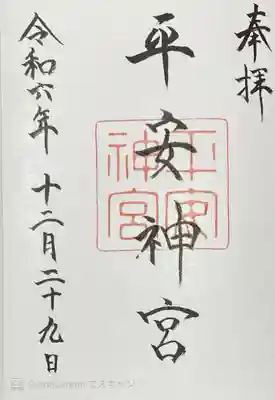 奉拝
平安神宮
平安神宮
令和六年 十二月二十九日
CamScanner でスキャン